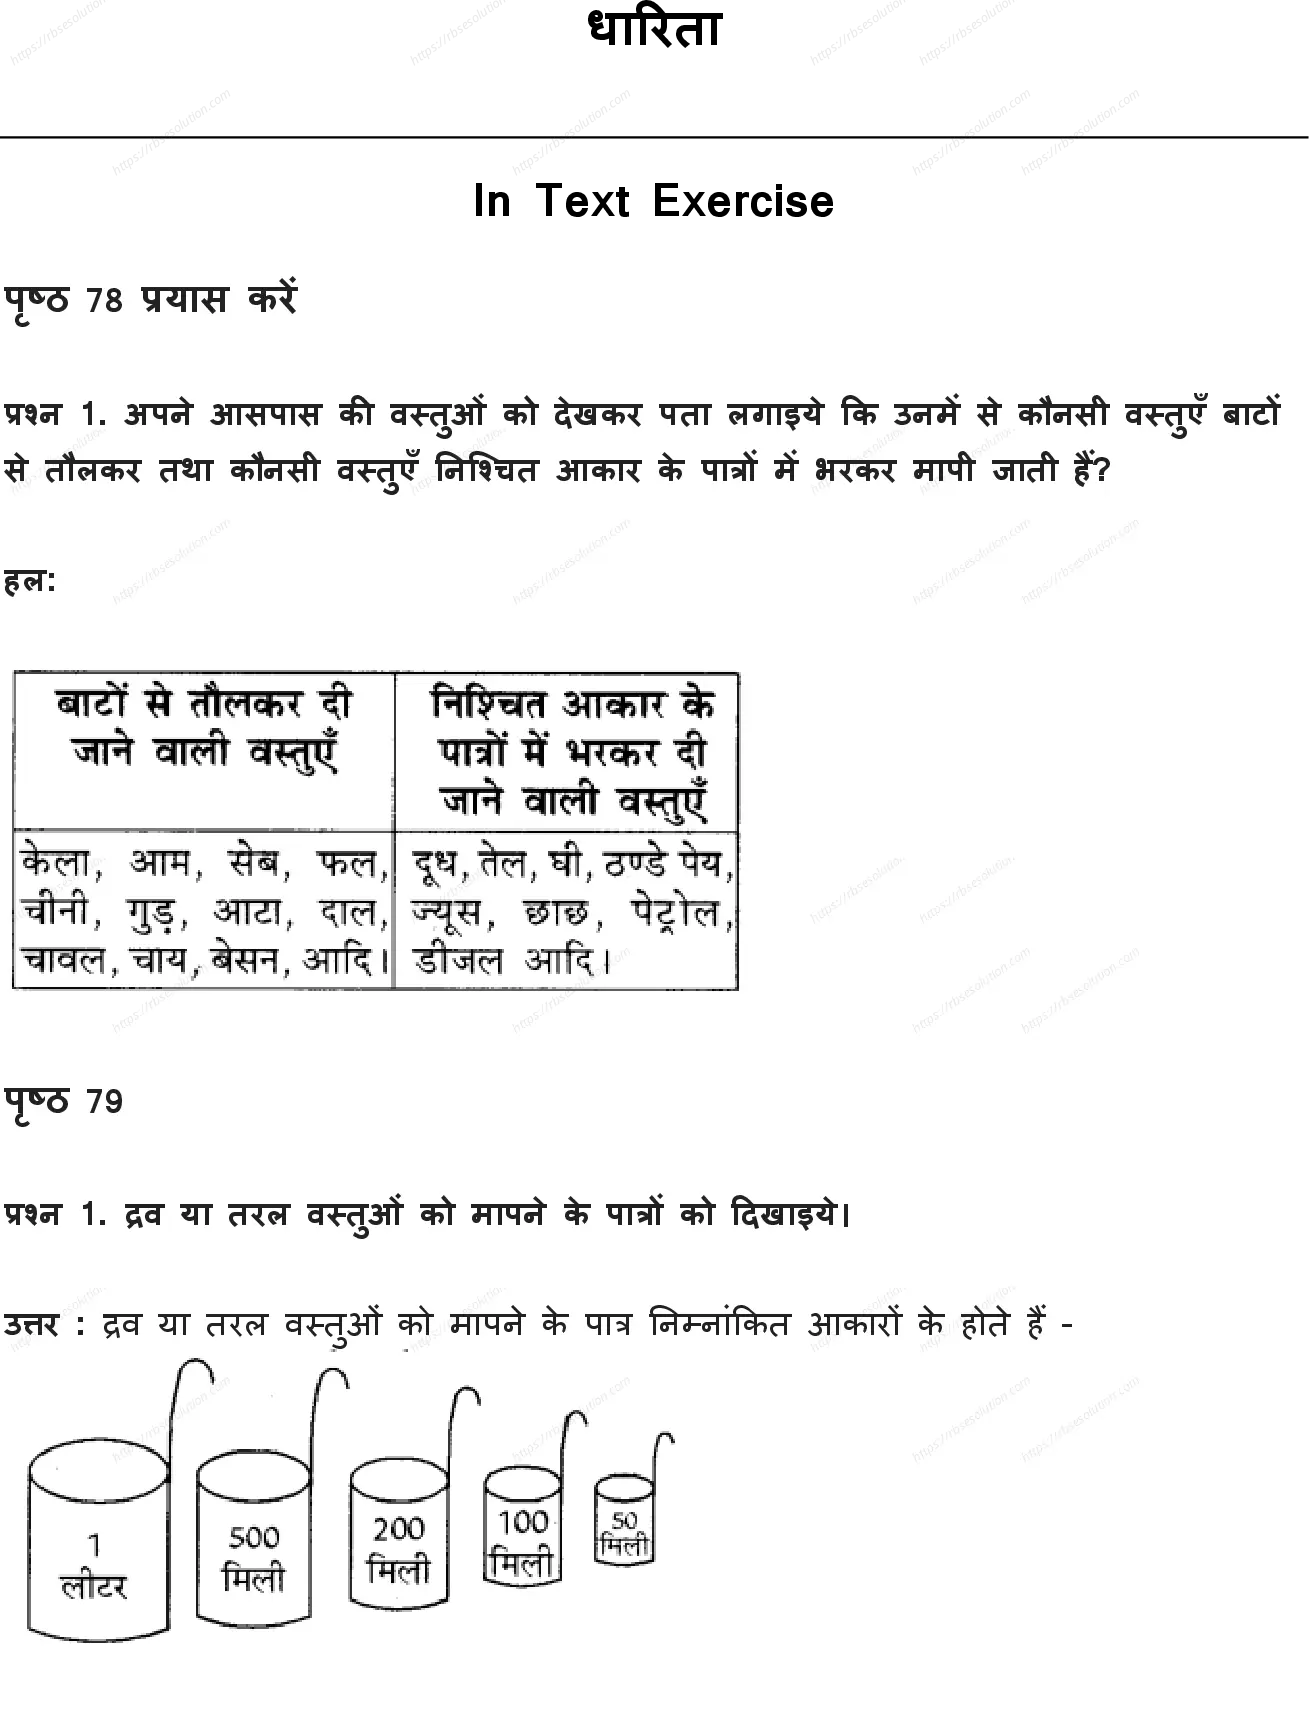 धारिता
In Text Exercise
पृष्ठ 78 प्रयास करें
प्रश्न 1. अपने आसपास की वस्तुओं को देखकर पता लगाइये कि उनमें से कौनसी वस्तुएँ बाटों
से तौलकर तथा कौनसी वस्तुएँ निश्चित आकार के पात्रों में भरकर मापी जाती हैं?
हल:
बाटों से तौलकर दी
जाने वाली वस्तुएँ
निश्चित आकार के
पात्रों में भरकर दी
जाने वाली वस्तुएँ
केला, आम, सेब, फल,
चीनी, गुड़, आटा, दाल,
चावल, चाय, बेसन, आदि।
दूध, तेल, घी, ठण्डे पेय,
ज्यूस, छाछ, पेट्रोल,
डीजल आदि।
पृष्ठ 79
प्रश्न 1. द्रव या तरल वस्तुओं को मापने के पात्रों को दिखाइये।
उत्तर : द्रव या तरल वस्तुओं को मापने के पात्र निम्नांकित आकारों के होते हैं -
1
लीटर
500
मिली
200
मिली
100
मिली
50
मिली
https://rbsesolution.com